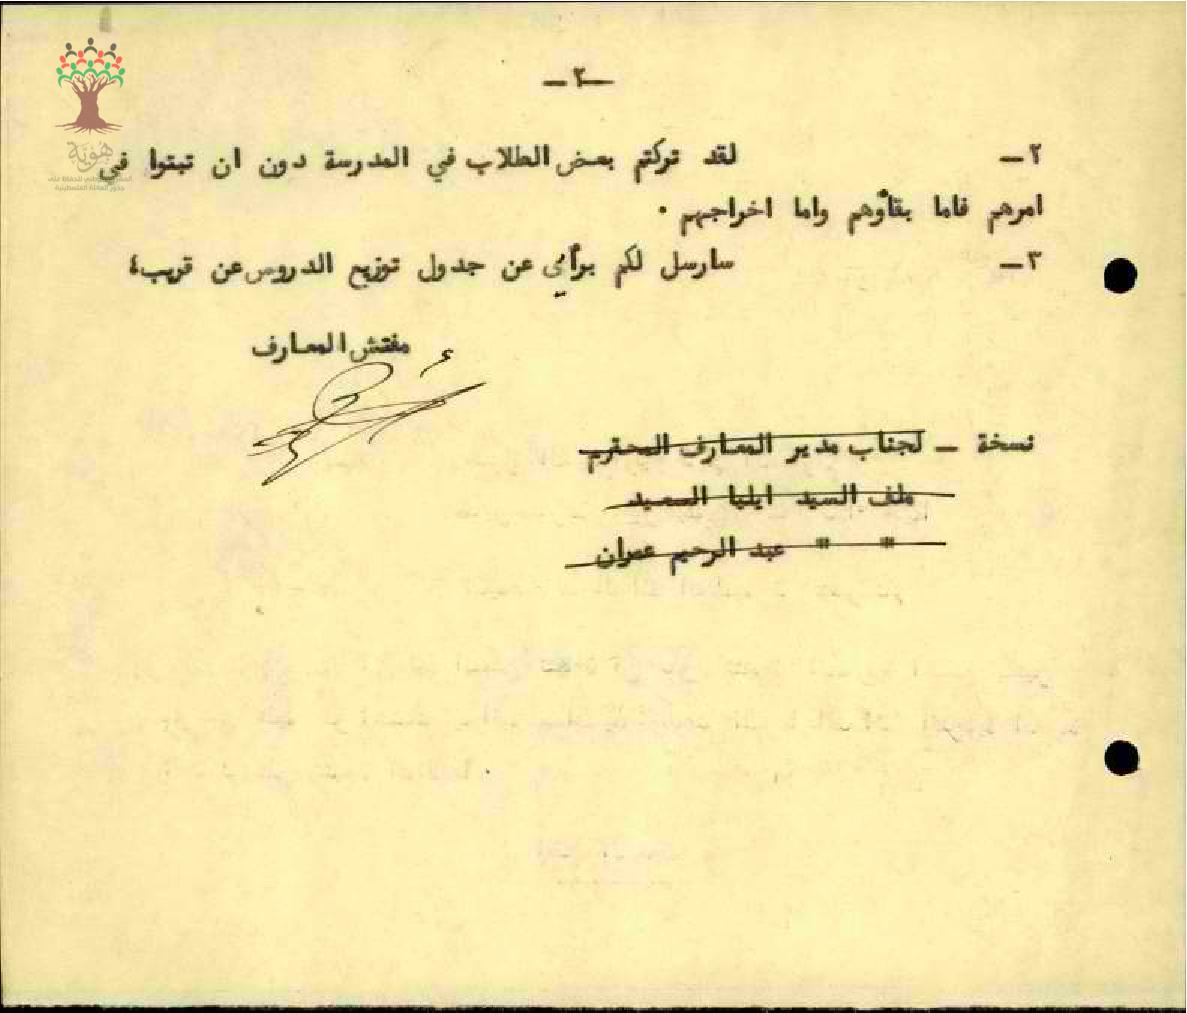 —٢—
٢— لقد تركتم بعض الطلاب في المدرسة دون ان تبتوا في
امرهم فاما بقاؤهم واما اخراجهم ٠
٣— سارسل لكم برأيي عن جدول توزيع الدروس عن قريب،
مفتش المعارف
نسخة — لجناب مدير المعارف المحترم
ملف السيد ايليا السعيد
" " عبد الرحيم عمران
هوية